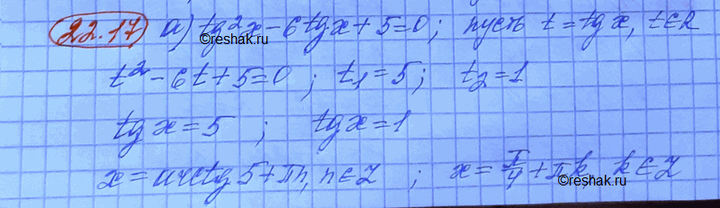 22.17 а) tg²x - 6tgx + 5 = 0; пусть t = tg x, t∈R
©reshak.ru
t² - 6t + 5 = 0 ; t₁ = 5; t₂ = 1
tg x = 5 ; tg x = 1
x = arctg 5 + πn, n∈Z ; x = π/4 + πk k∈Z
©reshak.ru